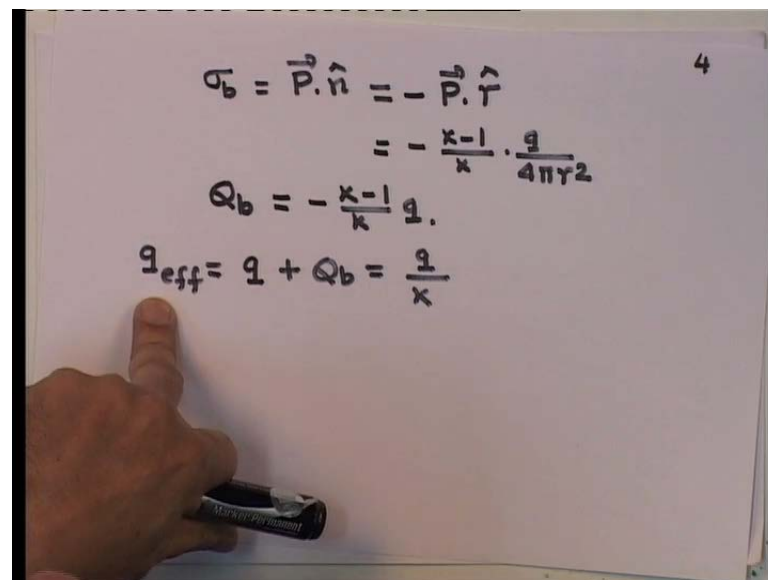 4
σ_b = P⃗.n̂ = - P⃗.r̂
= - κ-1/κ . q/4πr2
Q_b = - κ-1/κ q.
q_eff = q + Q_b = q/κ
Marker Permanent